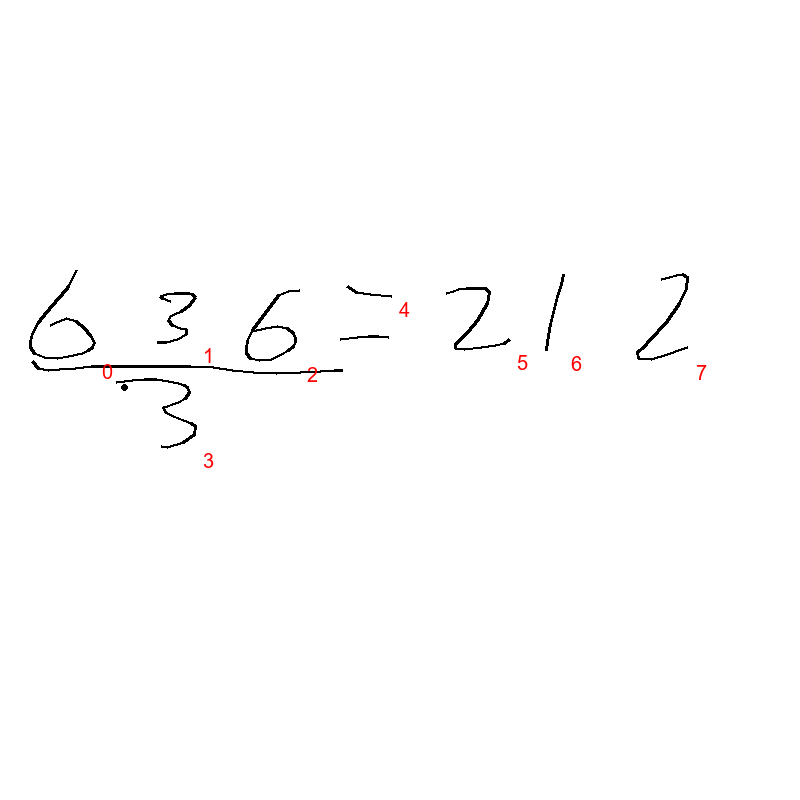 636 = 212
3
0 1 2 3 4 5 6 7